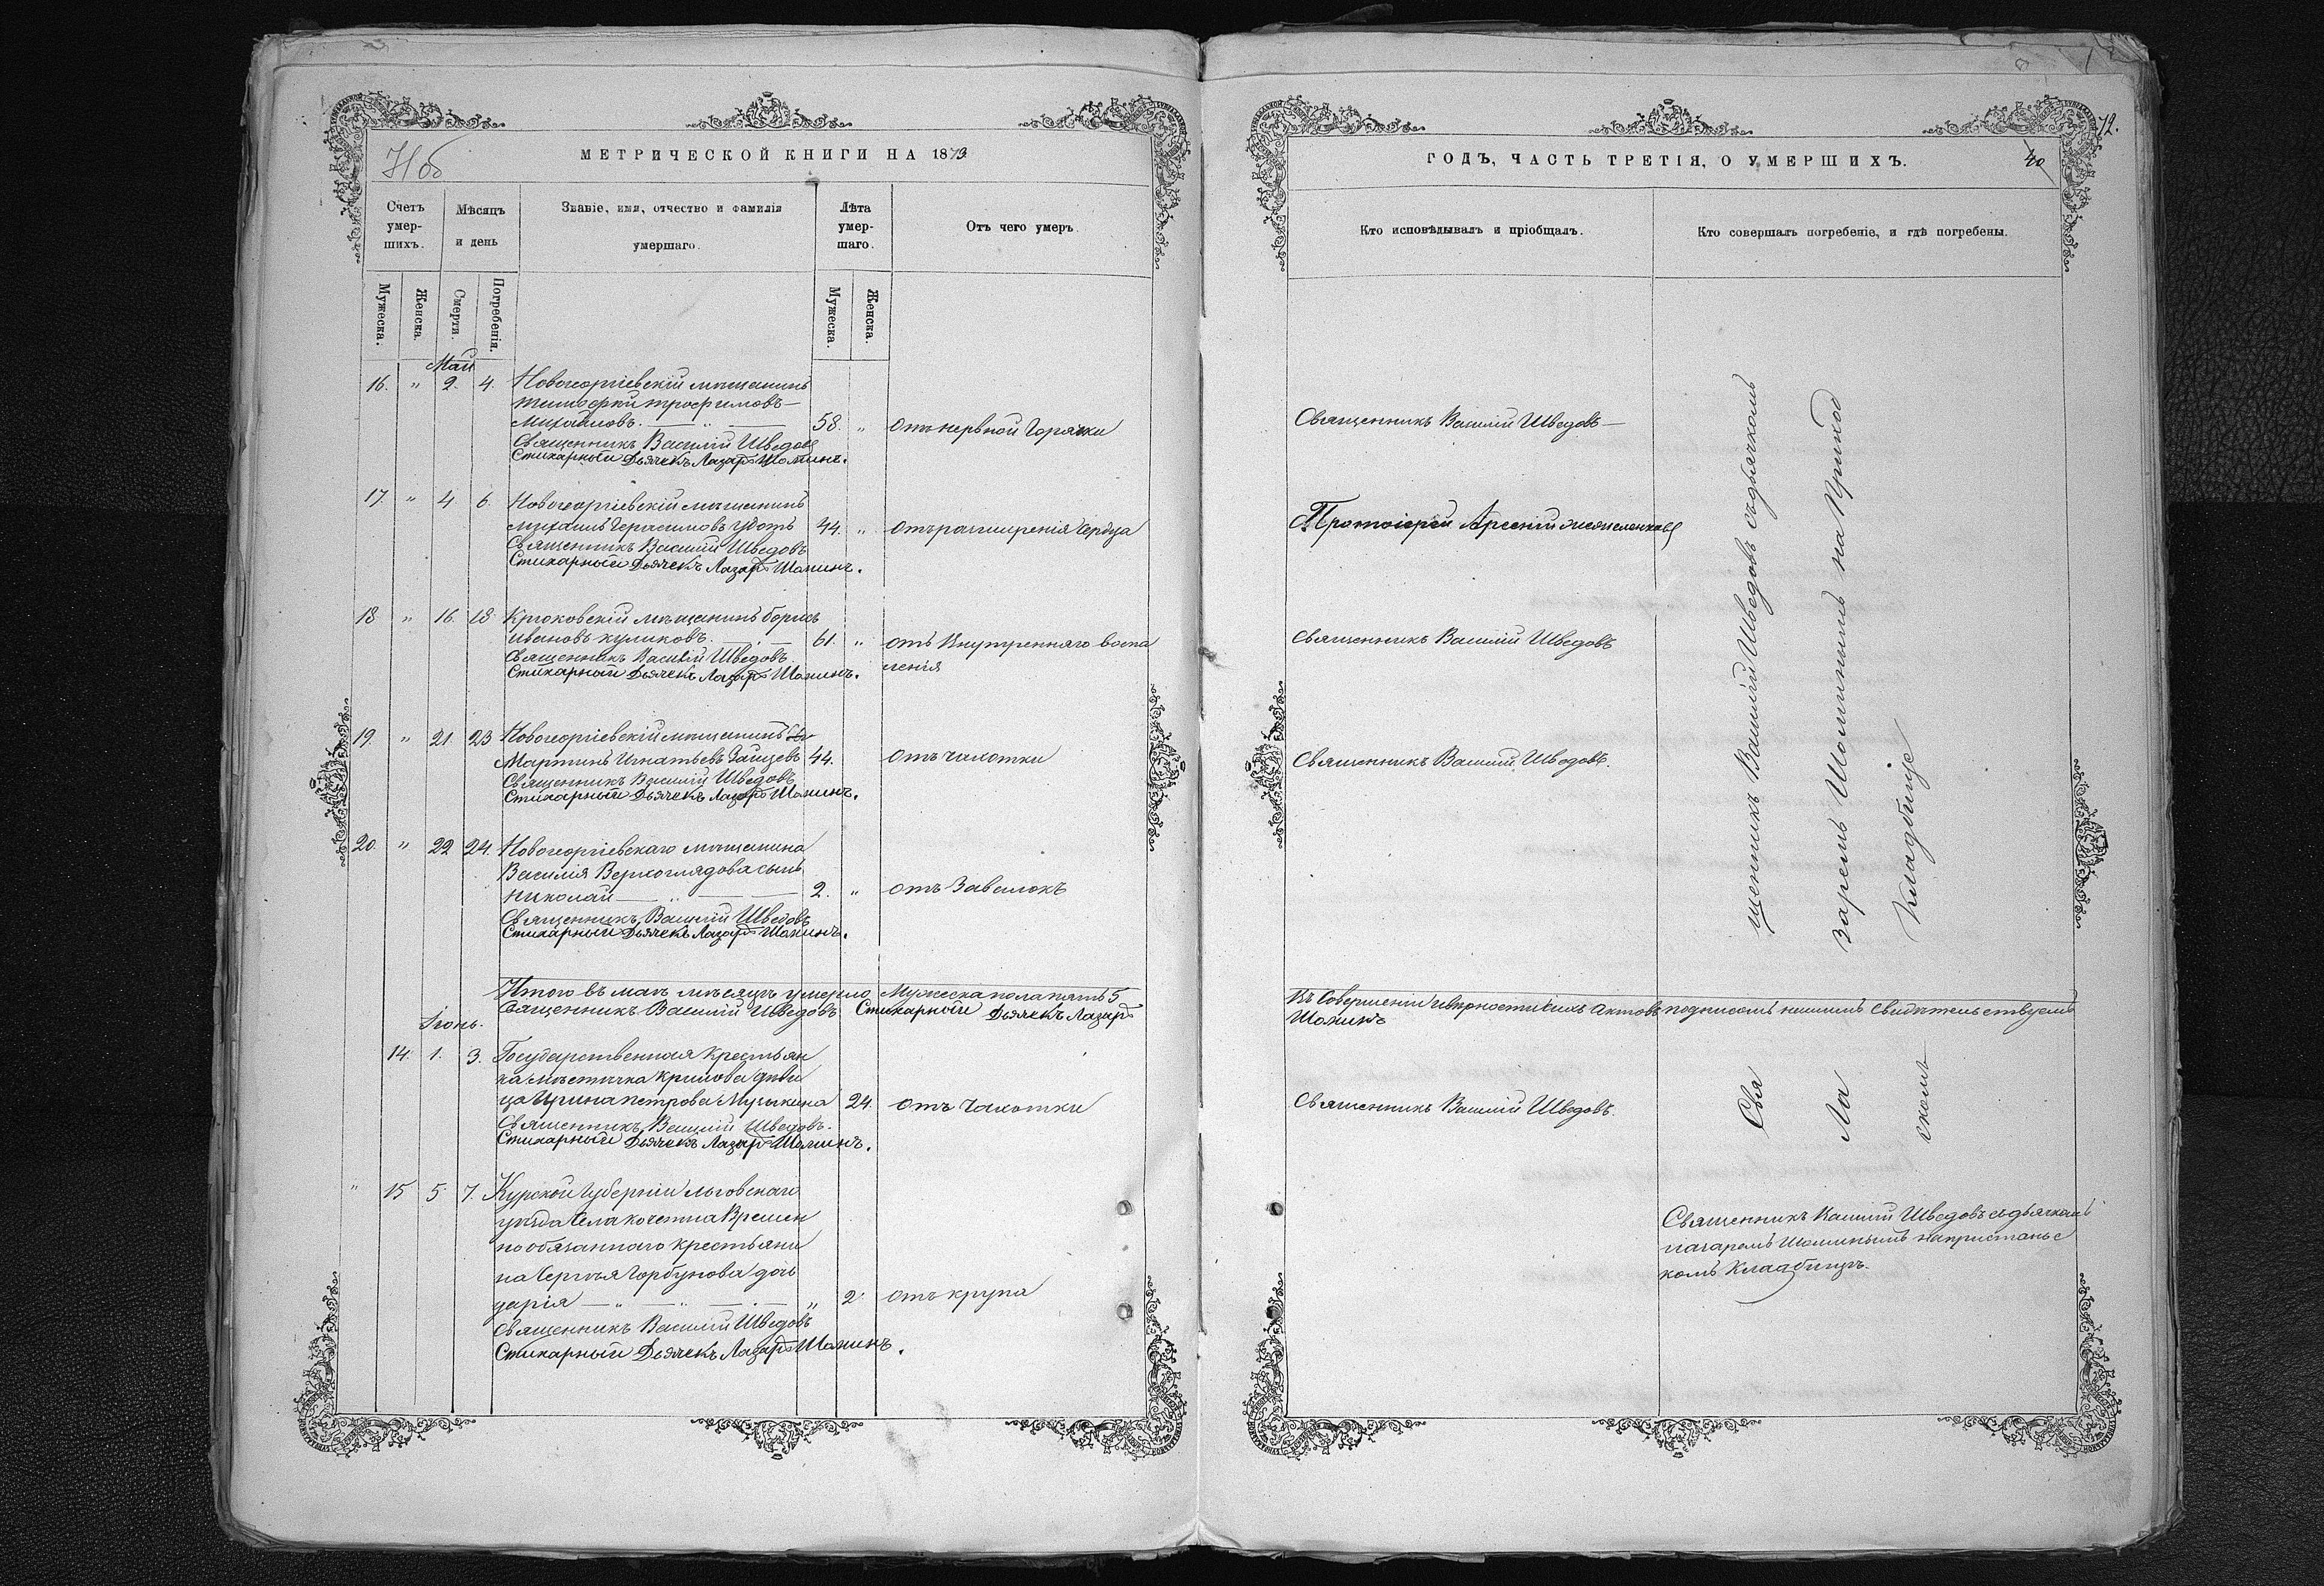 МЕТРИЧЕСКОЙ КНИГИ НА 1873
Счетъ умер-шихъ.
Мѣсяцъ и день
Званіе, имя, отчество и фамилія умершаго.
Лѣта умер-шаго.
Отъ чего умеръ.
Мужеска.
Женска.
Смерти.
Погребенія.
Мужеска.
Женска.
Май
16. " 2. 4. Новогеоргіевскій мѣщанинъ
Тимофей Трофимовъ
Михайловъ. 58. " Отъ нервной Горячки
Священникъ Василій Шведовъ
Стихарный Дьячекъ Лазарь Шоминъ.
17. " 4. 6. Новогеоргіевскій мѣщанинъ
Михаилъ Герасимовъ 44. " Отъ разширенія Сердца
Священникъ Василій Шведовъ
Стихарный Дьячекъ Лазарь Шоминъ.
18 " 16. 18. Крюковскій мѣщанинъ Борисъ
Ивановъ Куликовъ. 61. " отъ Внутренняго воспа
ленія
Священникъ Василій Шведовъ
Стихарный Дьячекъ Лазарь Шоминъ.
19. " 21. 23 Новогеоргіевскій мѣщанинъ
Мартинъ Игнатьевъ Зайцевъ 44. Отъ чахотки
Священникъ Василій Шведовъ
Стихарный Дьячекъ Лазарь Шоминъ.
20. " 22 24. Новогеоргіевскаго мѣщанина
Василія Верхоглядова сынъ
Николай 2. " отъ Завалокъ
Священникъ Василій Шведовъ
Стихарный Дьячекъ Лазарь Шоминъ.
Итого въ маѣ мѣсяцѣ умерло Мужеска пола пять 5
Священникъ Василій Шведовъ Стихарный Дьячекъ Лазарь
Іюнь.
14. 1. 3. Государственная Крестьян
ка мѣстечка Крилова дѣви
ца Ирина Петрова Музыкина 24. отъ Чахотки
Священникъ Василій Шведовъ.
Стихарный Дьячекъ Лазарь Шоминъ.
" 15 5 7. Курской Губерніи Льговскаго
уѣзда Села Кочетна Времен
но обязаннаго крестьяни
на Сергѣя Горбунова дочь
Дарія " 2 Отъ крупа
Священникъ Василій Шведовъ
Стихарный Дьячекъ Лазарь Шоминъ.
72.
40
ГОДЪ, ЧАСТЬ ТРЕТІЯ, О УМЕРШИХЪ.
Кто исповѣдывалъ и пріобщалъ.
Кто совершалъ погребеніе, и гдѣ погребены.
Священникъ Василій Шведовъ
Протоіерей Арсеній
Священникъ Василій Шведовъ
Священникъ Василій Шведовъ.
Въ Совершеніи и вѣрности сихъ Актовъ подписомъ нашимъ Свидѣтельствуемъ
Шоминъ
Священникъ Василій Шведовъ.
Священникъ Василій Шведовъ съ дьячкомъ
Лазаремъ Шоминымъ на Пристанс
комъ Кладбищѣ
Священникъ Василій Шведовъ съ дьячкомъ
Лазаремъ Шоминымъ на
скомъ Кладбищѣ.